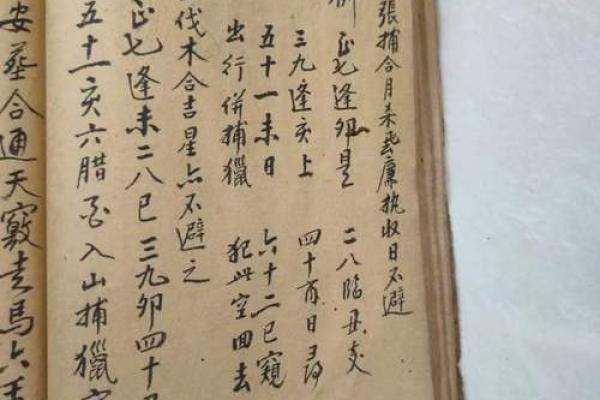 張捕合月杀飛廉执收日不避
正七逢卯是 二八臨丑支
三九逢亥上 四十酉日尋
五十一未日 六十二巳窺
出行併捕獵 犯此空回去
伐木合吉星亦不避之
正七逢未二八巳三九卯四十日
五十一亥六腊 入山捕獵
安葬合通天竅走馬六壬